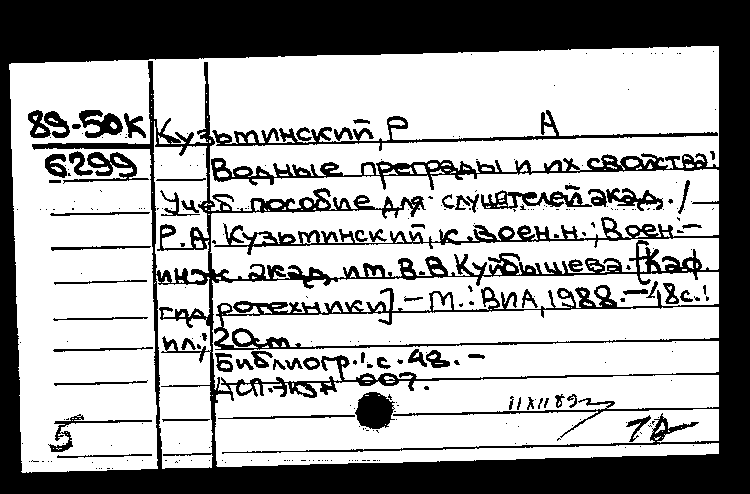 89-50К Кузьтинский, Р А
6299 Водные преграды и их свойства:
Учеб. пособие для слушателей акад. /
Р.А. Кузьтинский, к.воен.н.; Воен.-
инж. акад. им. В.В.Куйбышева. [Каф.
гидротехники]. - М.: ВИА, 1988. - 48с.:
ил.; 20см.
Библиогр.: с. 48. -
ДСП. Экз № 007.
11 XII 89
5